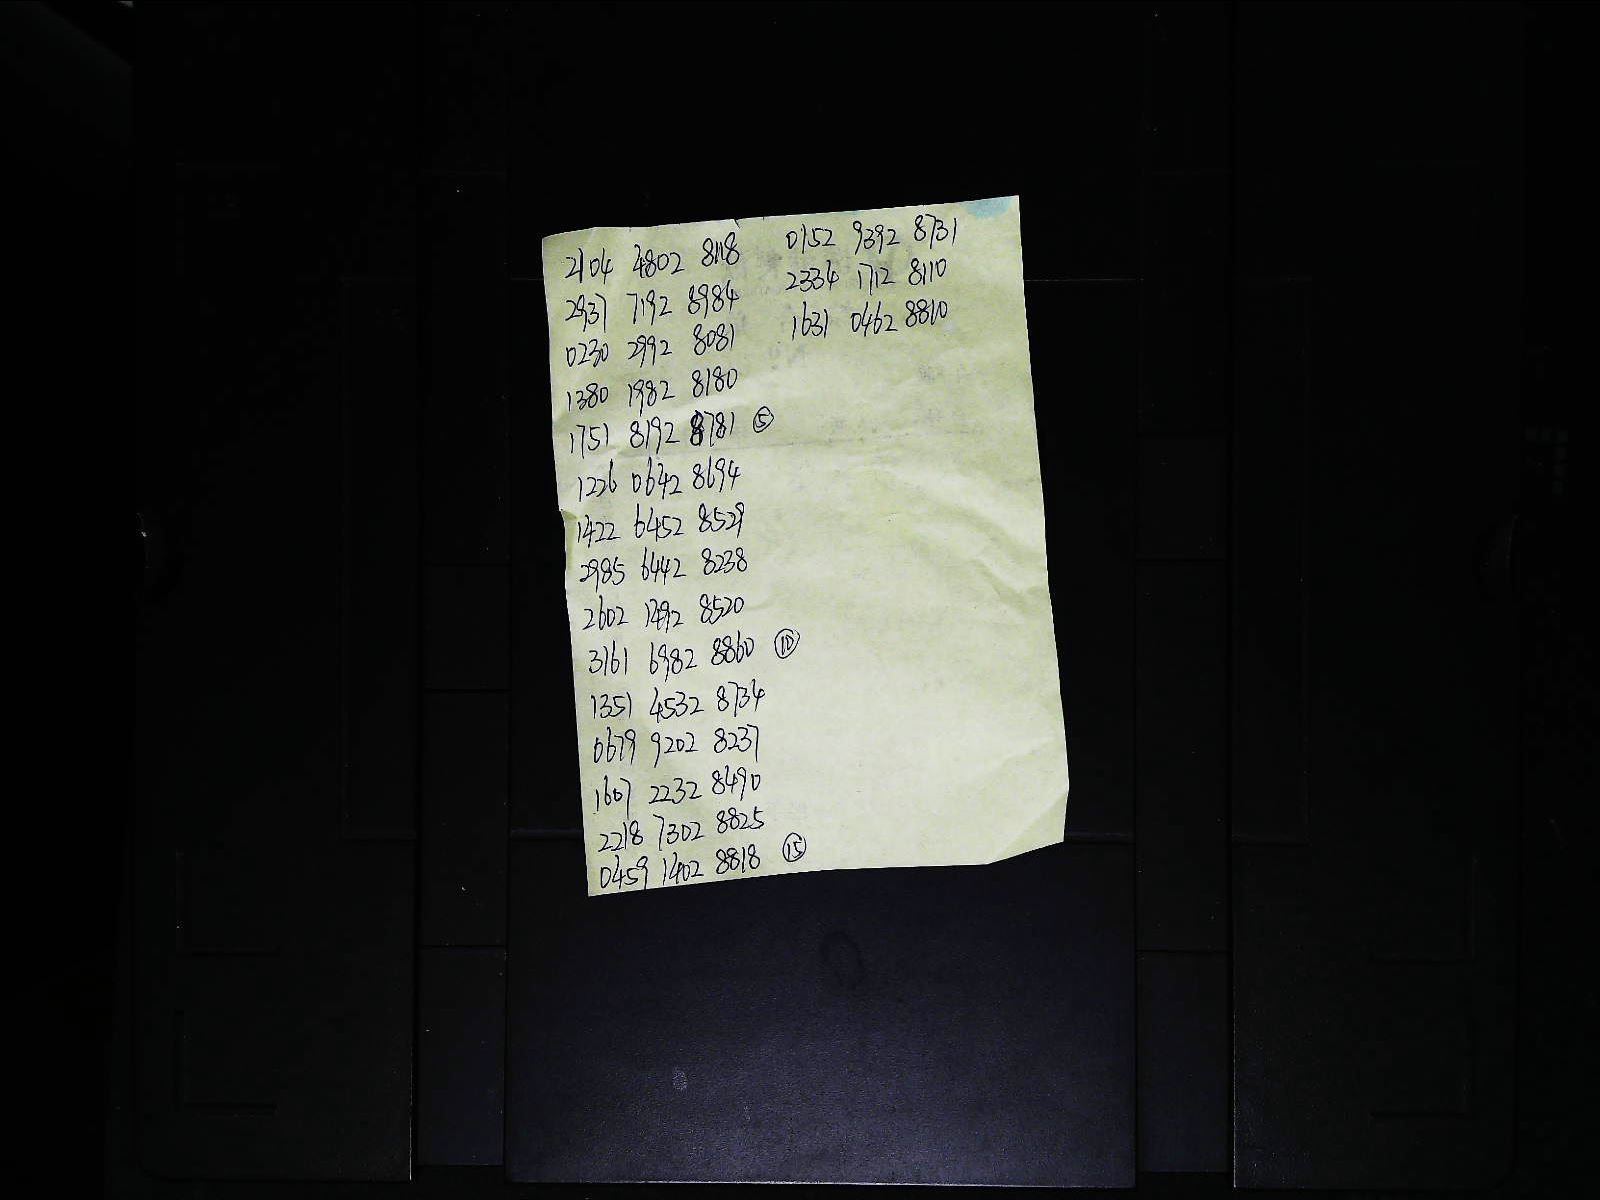 2104 4802 8118
2937 7192 8984
0230 2992 8081
1380 1982 8180
1751 8192 8781 ⑤
1226 0642 8694
1422 6452 8529
2985 6442 8238
2602 1492 8520
3161 6982 8860 ⑩
1351 4532 8734
0679 9202 8237
1607 2232 8490
2218 7302 8825
0459 1402 8818 ⑮
0152 9392 8731
2334 1712 8110
1631 0462 8810